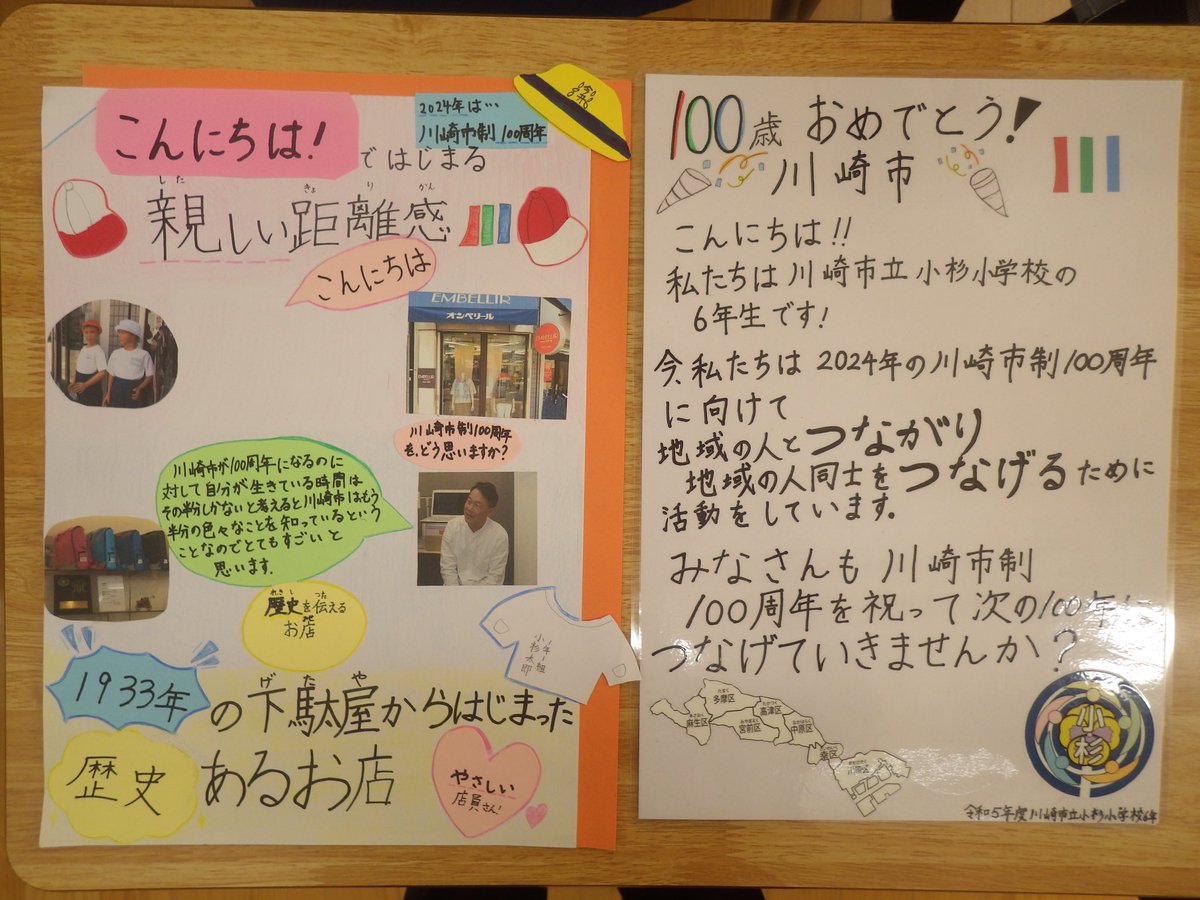 こんにちは!
ではじまる
2024年は…
川崎市制100周年
親しい距離感
した
きょ
り
かん
こんにちは
EMBELLIR
オンベリール
川崎市制100周年
を、どう思いますか?
川崎市が100周年になるのに
対して自分が生きている時間は
その半分しかないと考えると川崎市はもう
半分の色々なことを知っているという
ことなのでとてもすごいと
思います.
れきし
つた
歴史を伝える
お店
小杉太郎
1933年
の下駄屋からはじまった
げ
た
や
歴史
あるお店
やさしい
店員さん!
100歳 おめでとう!
川崎市
こんにちは!!
私たちは川崎市立小杉小学校の
6年生です!
今、私たちは2024年の川崎市制100周年
に向けて
地域の人とつながり
地域の人同士をつなげるために
活動をしています。
みなさんも川崎市制
100周年を祝って次の100年に
つなげていきませんか?
たまく
多摩区
あさおく
麻生区
たかつく
高津区
みやまえく
宮前区
なかはらく
中原区
幸区
川崎区
小杉
令和5年度川崎市立小杉小学校6年